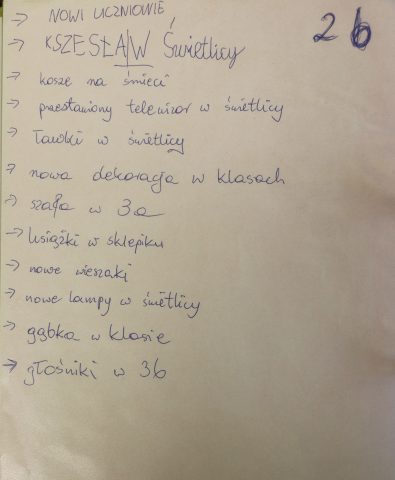 → NOWI UCZNIOWIE
2b
→ KSZESŁA W Świetlicy
→ kosze na śmieci
→ przestawiony telewizor w świetlicy
→ Ławki w świetlicy
→ nowa dekoracja w klasach
→ szafa w 3a
→ książki w sklepiku
→ nowe wieszaki
→ nowe lampy w świetlicy
→ gąbka w klasie
→ głośniki w 3b